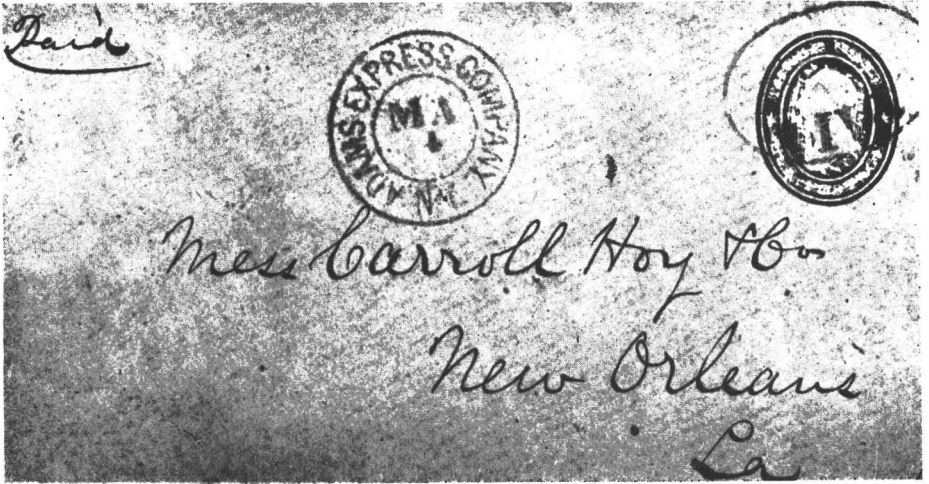 Paid
ADAMS EXPRESS COMPANY N.Y.
MA
1
Mess Carroll Hoy & Co
New Orleans
La